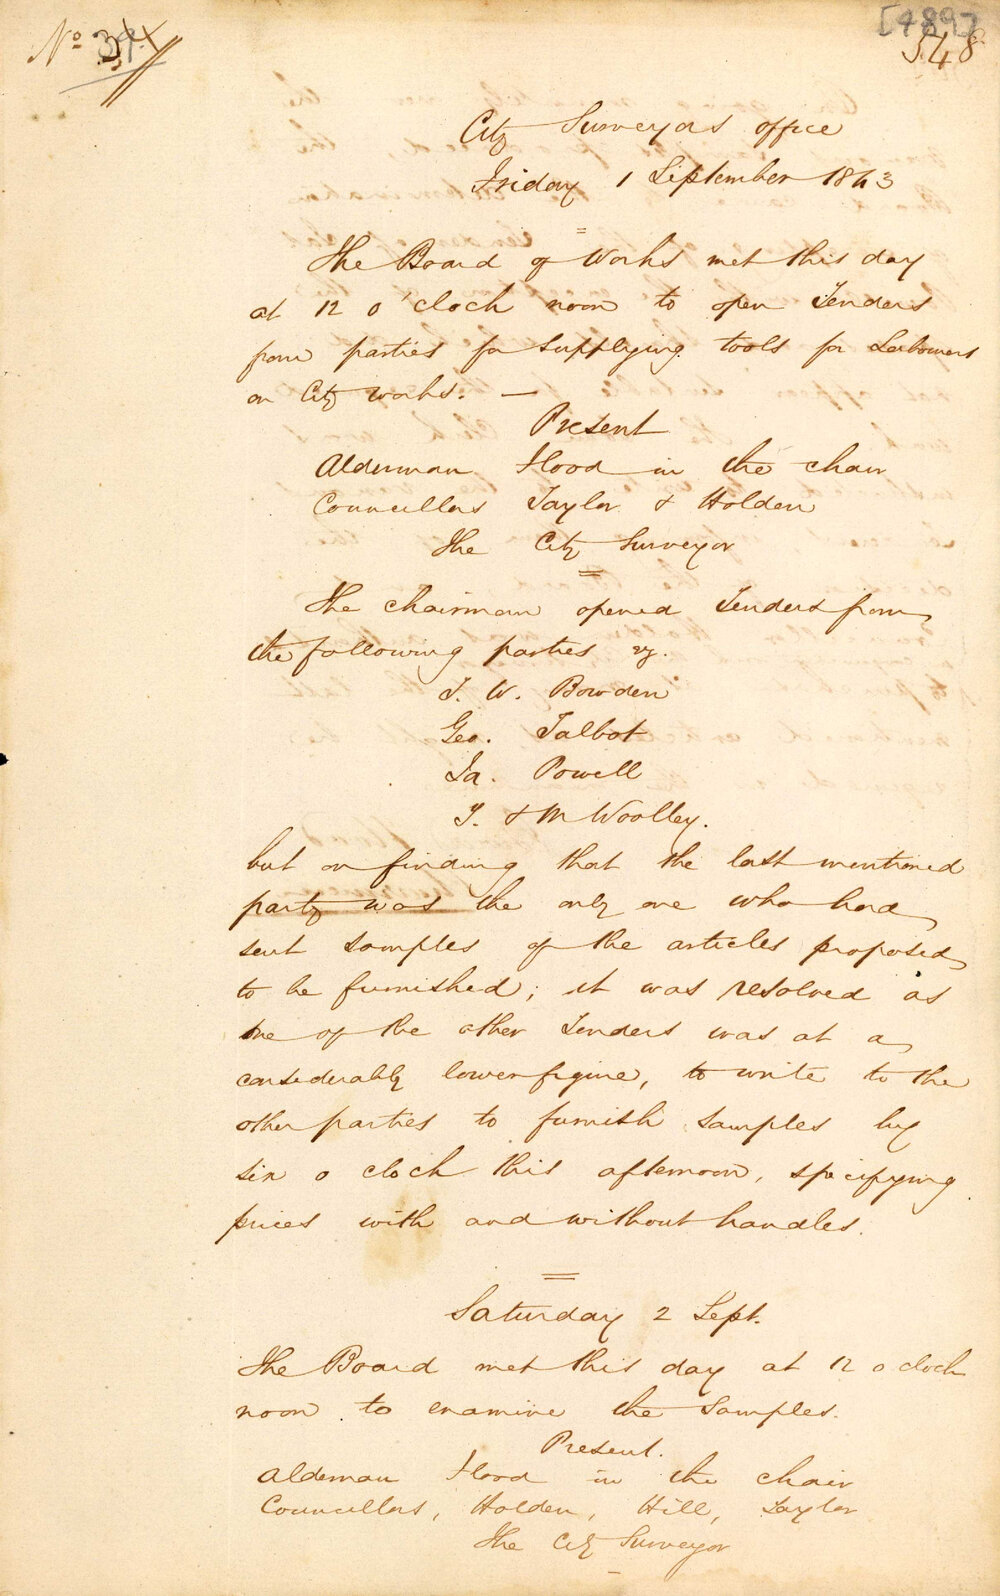 No 394
[489]
548
City Surveyors office
Friday 1 September 1843
The Board of Works met this day
at 12 o'clock noon to open Tenders
from parties for supplying tools for Labourers
on City works. —
Present
Alderman Flood in the chair
Councillors Taylor & Holden
The City Surveyor
The chairman opened Tenders from
the following parties vz.
T. W. Bowden
Geo. Talbot
Ja. Powell
T. & M Woolley.
but on finding that the last mentioned
party was the only one who had
sent samples of the articles proposed
to be furnished; it was resolved as
one of the other Tenders was at a
considerably lower figure, to write to the
other parties to furnish samples by
six o clock this afternoon, specifying
prices with and without handles.
Saturday 2 Sept.
The Board met this day at 12 o clock
noon to examine the Samples.
Present.
Alderman Flood in the chair
Councillors, Holden, Hill, Taylor
The City Surveyor